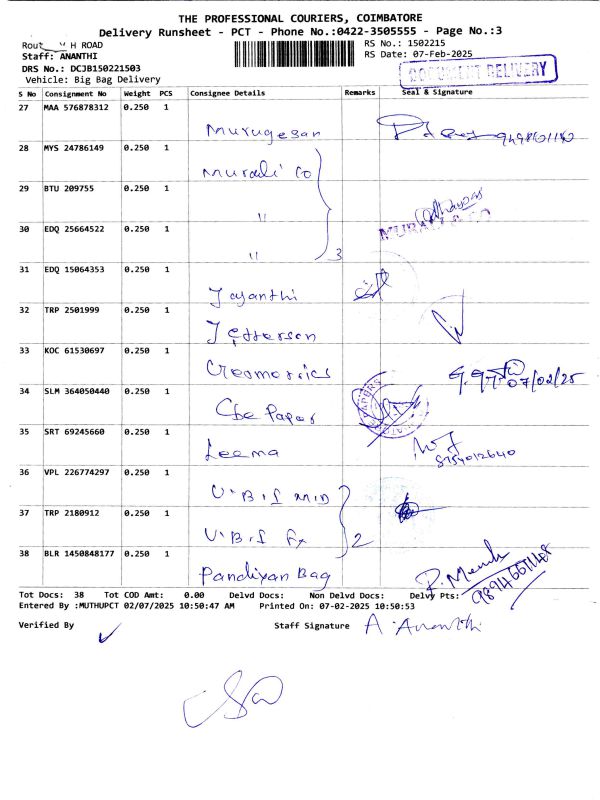 THE PROFESSIONAL COURIERS, COIMBATORE
Delivery Runsheet - PCT - Phone No.:0422-3505555 - Page No.:3
H ROAD
RS No.: 1502215
Staff: ANANTHI
RS Date: 07-Feb-2025
DRS No.: DCJB150221503
DOCUMENT DELIVERY
Vehicle: Big Bag Delivery
S No Consignment No Weight PCS Consignee Details Remarks Seal & Signature
27 MAA 576878312 0.250 1
Murugesan
28 MYS 24786149 0.250 1
Murali Co
29 BTU 209755 0.250 1
"
MURALI & CO
30 EDQ 25664522 0.250 1
" 3
31 EDQ 15064353 0.250 1
Jayanthi
32 TRP 2501999 0.250 1
Jefferson
33 KOC 61530697 0.250 1
Creamorries 07/02/25
34 SLM 364050440 0.250 1
Cbe Paper
35 SRT 69245660 0.250 1
Leema
8754012640
36 VPL 226774297 0.250 1
V.B.I.F MID
37 TRP 2180912 0.250 1
V.B.I.F Fx 2
38 BLR 1450848177 0.250 1
Pandiyan Bag
Tot Docs: 38 Tot COD Amt: 0.00 Delvd Docs: Non Delvd Docs: Delvy Pts:
Entered By :MUTHUPCT 02/07/2025 10:50:47 AM Printed On: 07-02-2025 10:50:53
Verified By Staff Signature A. Ananthi